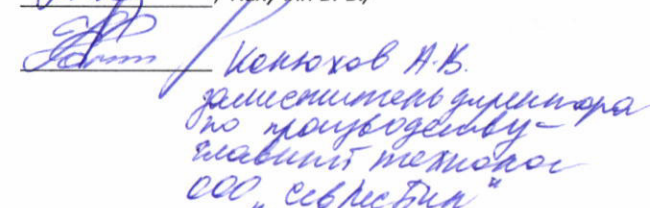 Конюхов А.В.
заместитель директора
по производству -
главный технолог
ООО „